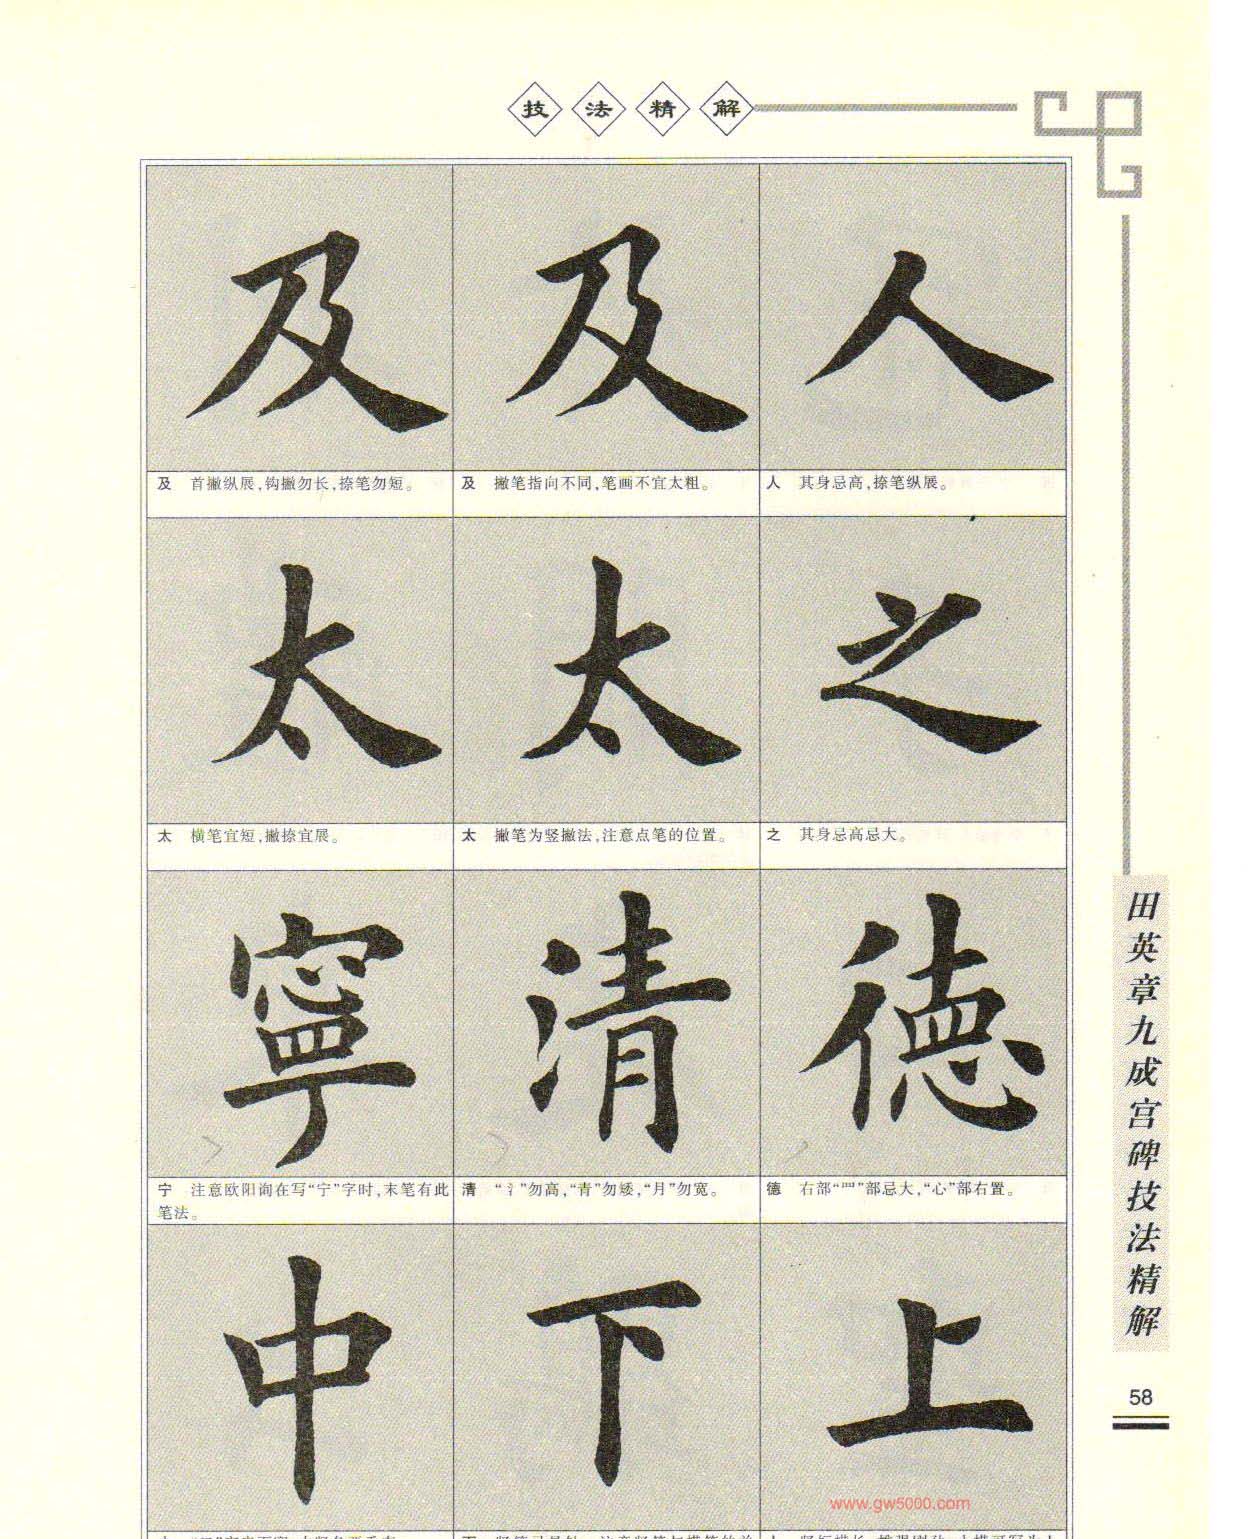 技法精解
及 及 人
及 首撇纵展,钩撇勿长,捺笔勿短。
及 撇笔指向不同,笔画不宜太粗。
人 其身忌高,捺笔纵展。
太 太 之
太 横笔宜短,撇捺宜展。
太 撇笔为竖撇法,注意点笔的位置。
之 其身忌高忌大。
寧 清 德
宁 注意欧阳询在写“宁”字时,末笔有此
笔法。
清 “氵”勿高,“青”勿矮,“月”勿宽。
德 右部“罒”部忌大,“心”部右置。
中 下 上
田英章九成宫碑技法精解
58
www.gw5000.com